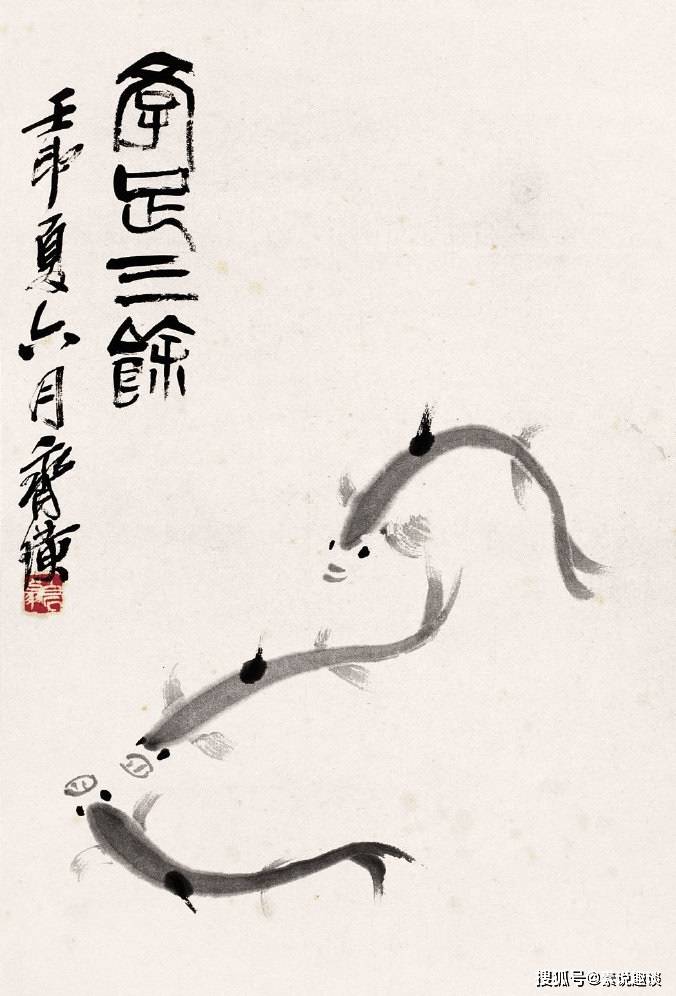 學足三餘
壬申夏六月齊璜
搜狐号@素说趣谈